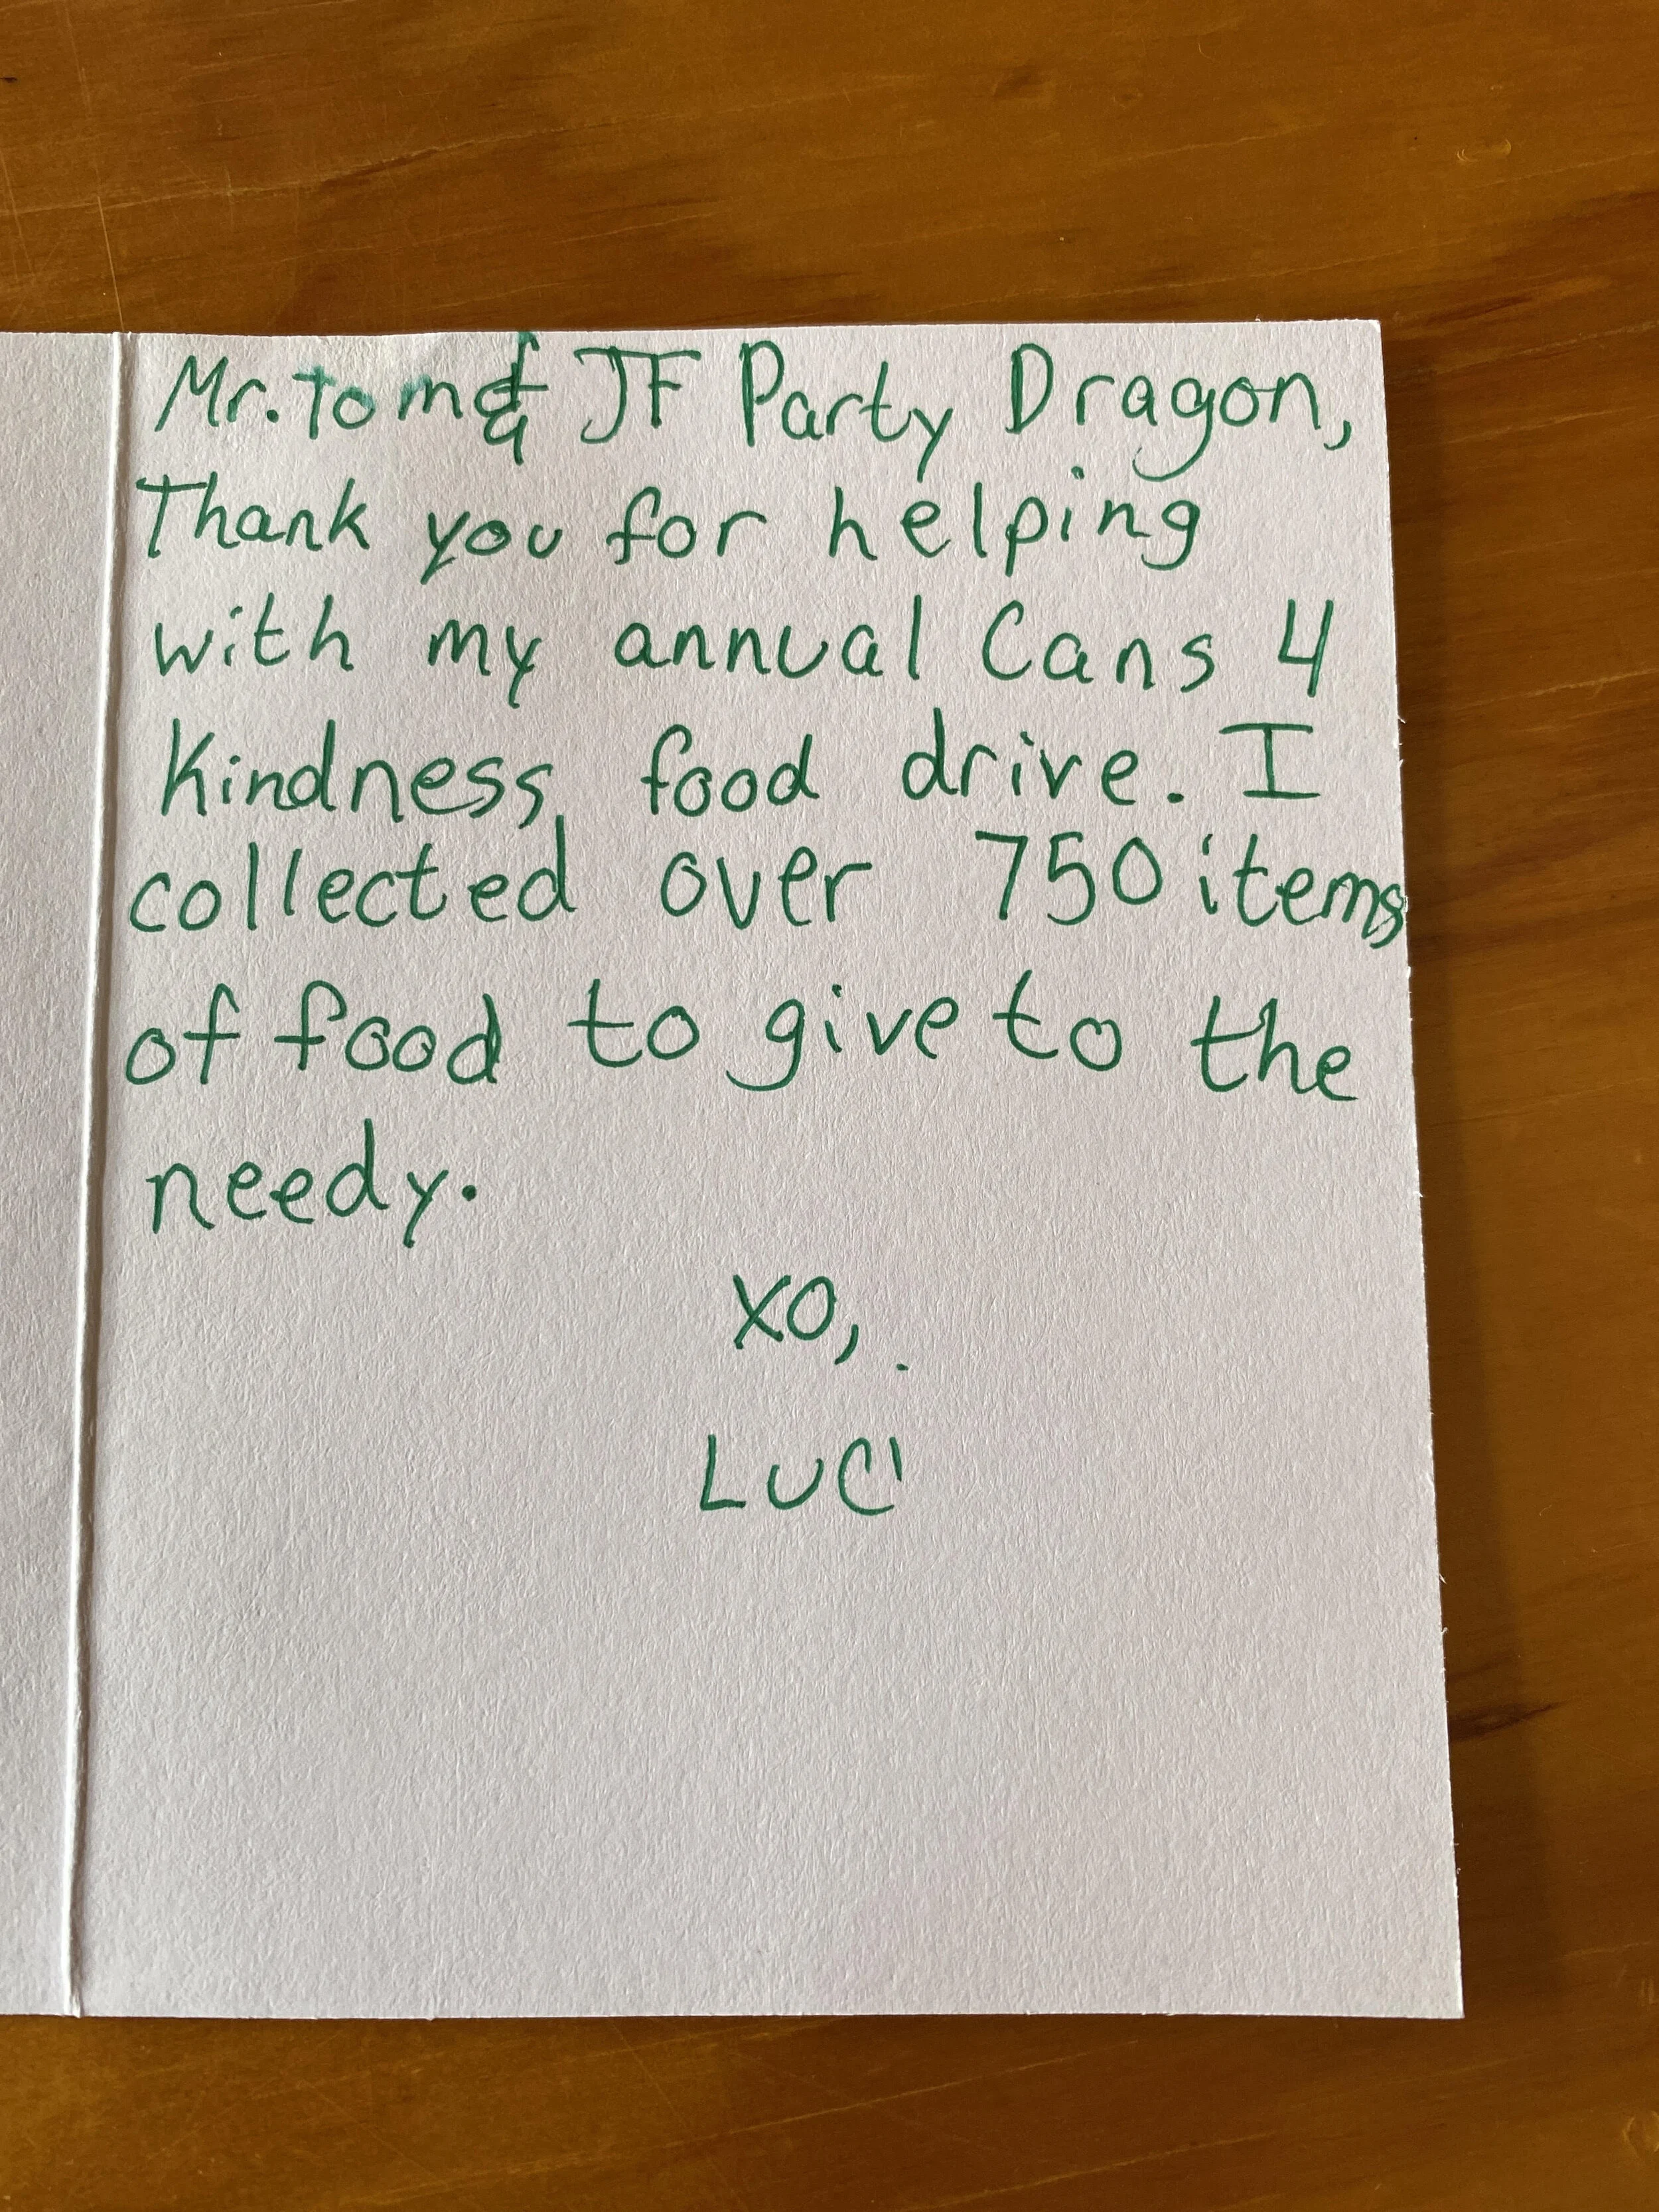 Mr. Tom & JF Party Dragon,
Thank you for helping
with my annual Cans 4
Kindness food drive. I
collected over 750 items
of food to give to the
needy.
XO,
LUCI